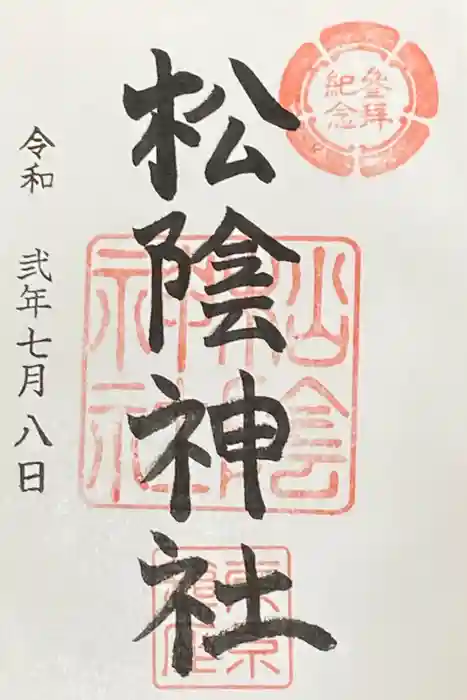 參拜
紀念
松陰神社
松陰
神社
東京
令和 弐年七月八日